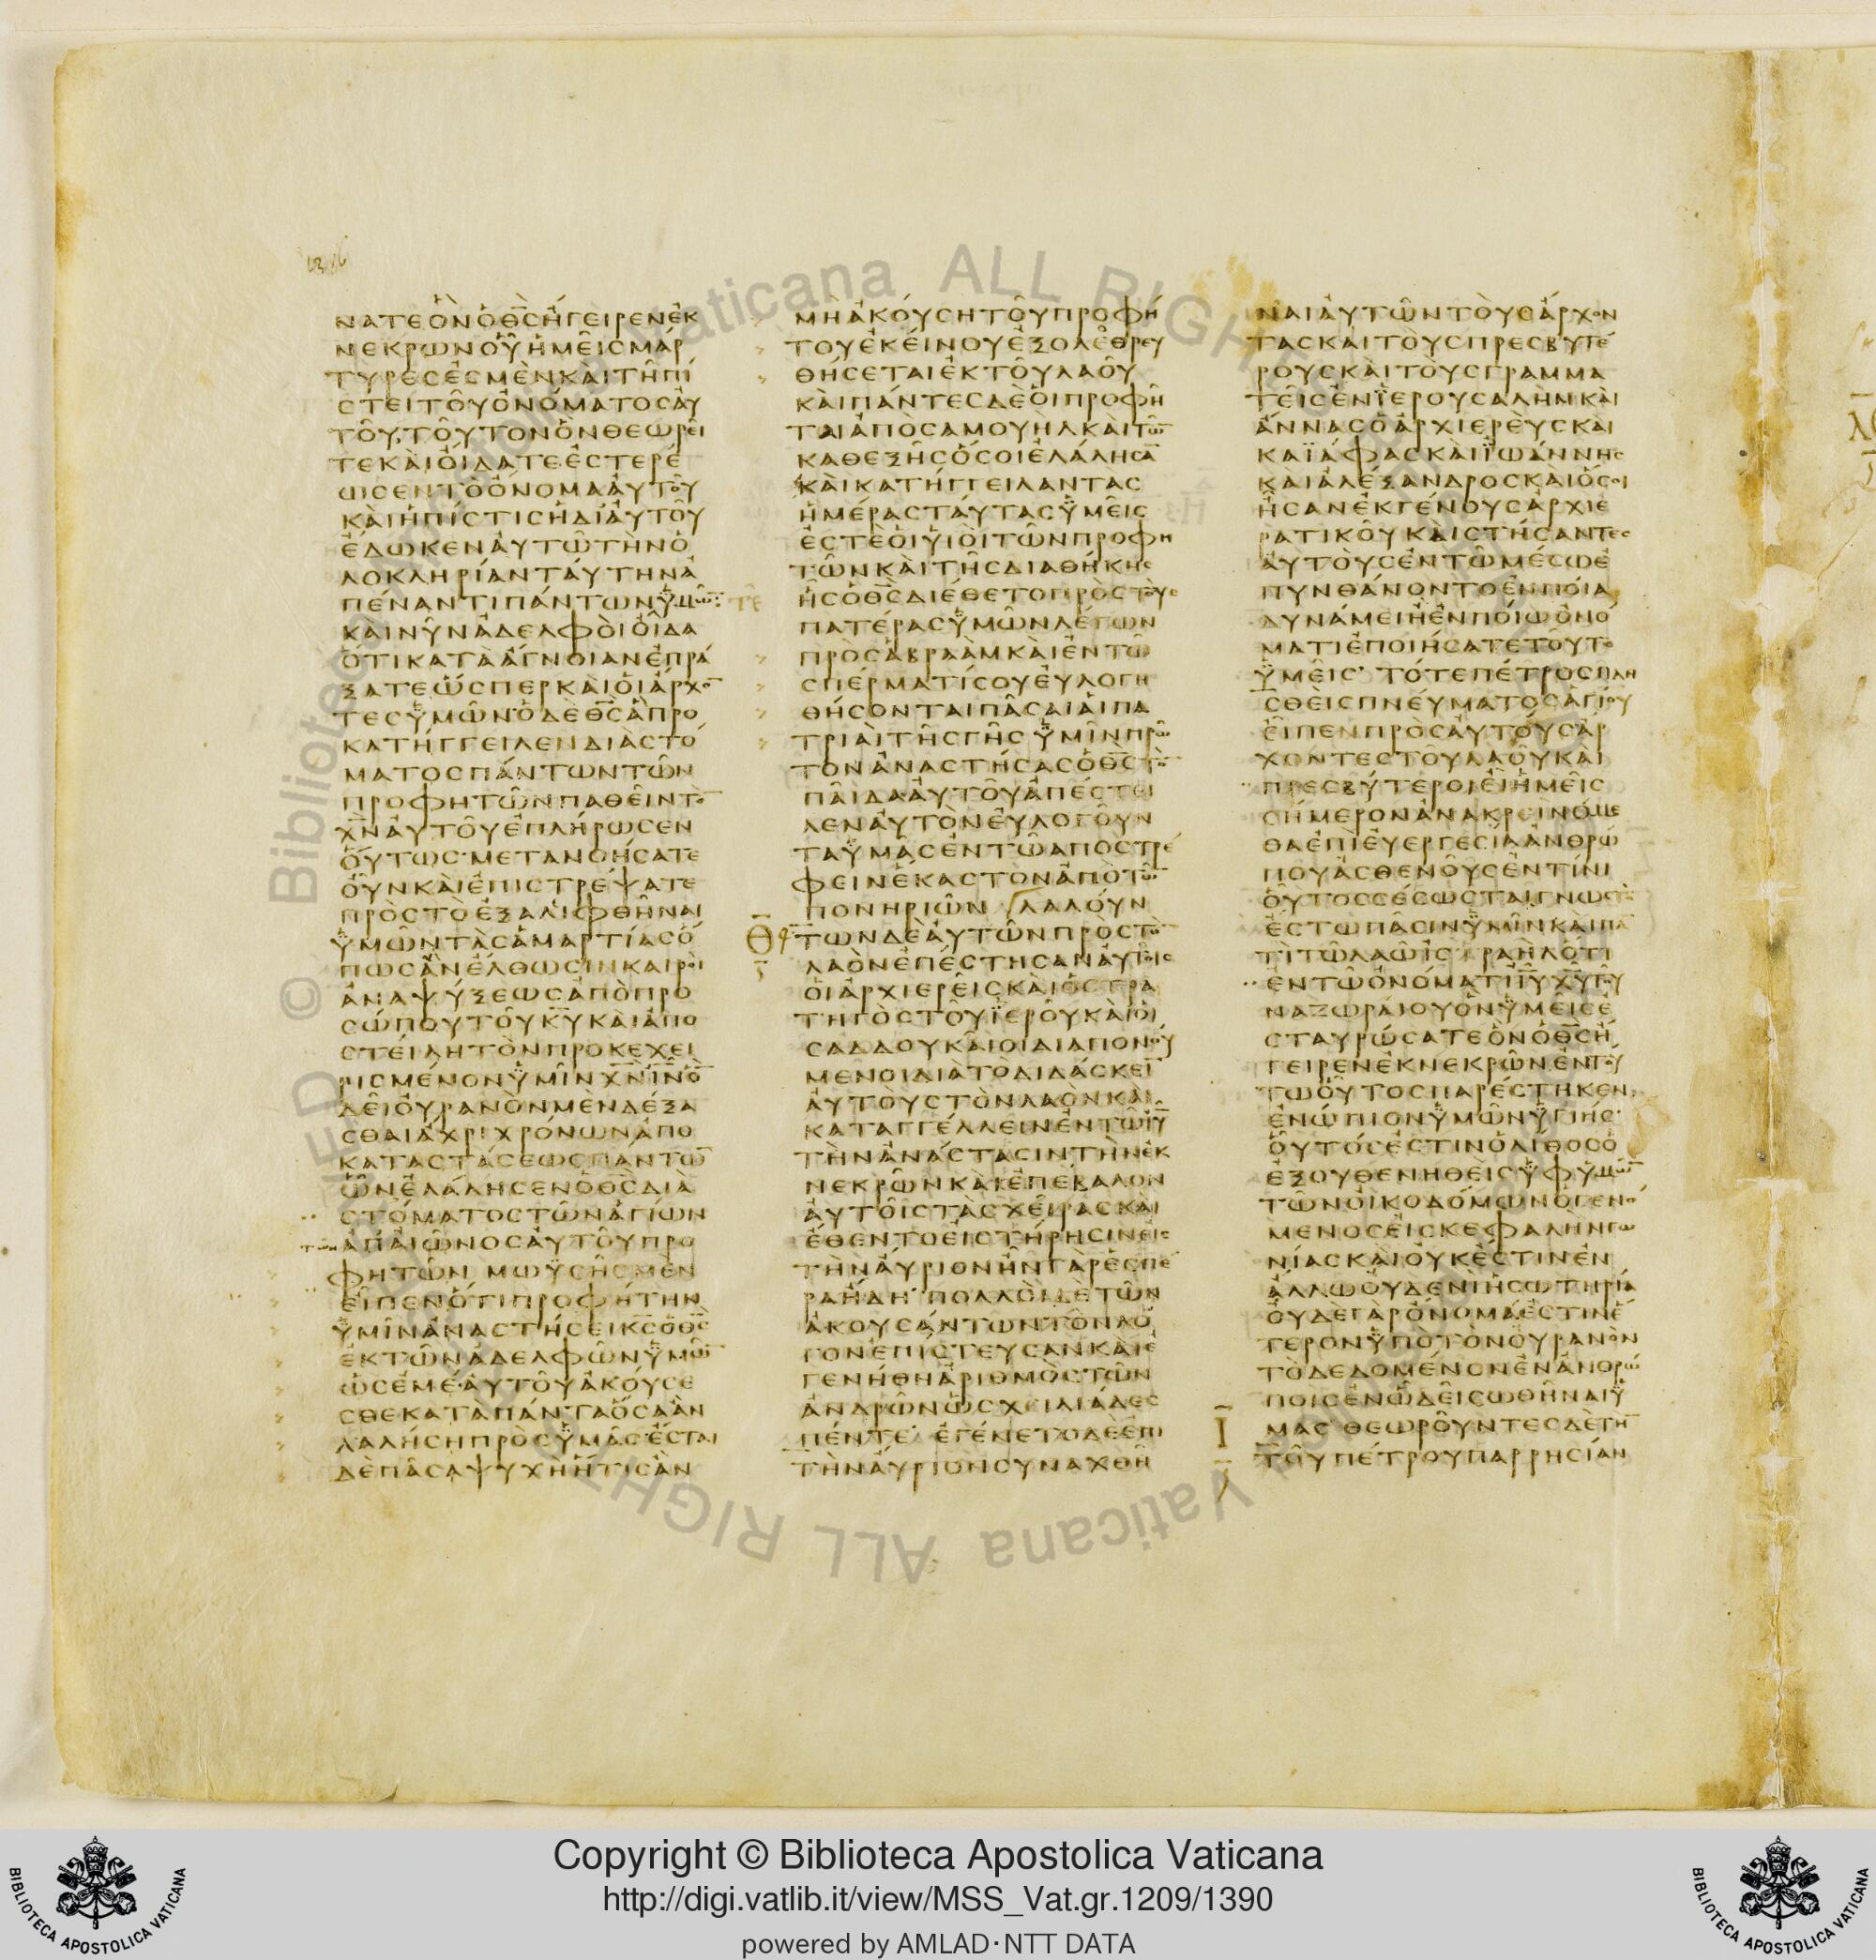 1386
ΝΑΤΕΟΝΟΘΣΗΓΕΙΡΕΝΕΚ
ΝΕΚΡΩΝΟΥΗΜΕΙΣΜΑΡ
ΤΥΡΕΣΕΣΜΕΝΚΑΙΤΗΠΙ
ΣΤΕΙΤΟΥΟΝΟΜΑΤΟΣΑΥ
ΤΟΥΤΟΥΤΟΝΟΝΘΕΩΡΕΙ
ΤΕΚΑΙΟΙΔΑΤΕΕΣΤΕΡΕ
ΩΣΕΝΤΟΟΝΟΜΑΑΥΤΟΥ
ΚΑΙΗΠΙΣΤΙΣΗΔΙΑΥΤΟΥ
ΕΔΩΚΕΝΑΥΤΩΤΗΝΟ
ΛΟΚΛΗΡΙΑΝΤΑΥΤΗΝΑ
ΠΕΝΑΝΤΙΠΑΝΤΩΝΥΜΩ̅
ΚΑΙΝΥΝΑΔΕΛΦΟΙΟΙΔΑ
ΟΤΙΚΑΤΑΑΓΝΟΙΑΝΕΠΡΑ
ΞΑΤΕΩΣΠΕΡΚΑΙΟΙΑΡΧΟ̅
ΤΕΣΥΜΩΝΟΔΕΘΣΑΠΡΟ
ΚΑΤΗΓΓΕΙΛΕΝΔΙΑΣΤΟ
ΜΑΤΟΣΠΑΝΤΩΝΤΩΝ
ΠΡΟΦΗΤΩΝΠΑΘΕΙΝΤΟ̅
ΧΝΑΥΤΟΥΕΠΛΗΡΩΣΕΝ
ΟΥΤΩΣΜΕΤΑΝΟΗΣΑΤΕ
ΟΥΝΚΑΙΕΠΙΣΤΡΕΨΑΤΕ
ΠΡΟΣΤΟΕΞΑΛΙΦΘΗΝΑΙ
ΥΜΩΝΤΑΣΑΜΑΡΤΙΑΣΟ
ΠΩΣΑΝΕΛΘΩΣΙΝΚΑΙΡΟΙ
ΑΝΑΨΥΞΕΩΣΑΠΟΠΡΟ
ΣΩΠΟΥΤΟΥΚΥΚΑΙΑΠΟ
ΣΤΕΙΛΗΤΟΝΠΡΟΚΕΧΕΙ
ΡΙΣΜΕΝΟΝΥΜΙΝΧΝΙΝΟ̅
ΔΕΙΟΥΡΑΝΟΝΜΕΝΔΕΞΑ
ΣΘΑΙΑΧΡΙΧΡΟΝΩΝΑΠΟ
ΚΑΤΑΣΤΑΣΕΩΣΠΑΝΤΩ̅
ΩΝΕΛΑΛΗΣΕΝΟΘΣΔΙΑ
ΣΤΟΜΑΤΟΣΤΩΝΑΓΙΩΝ
τωνΑΠΑΙΩΝΟΣΑΥΤΟΥΠΡΟ
ΦΗΤΩΝ ΜΩΥΣΗΣΜΕΝ
ΕΙΠΕΝΟΤΙΠΡΟΦΗΤΗΝ
ΥΜΙΝΑΝΑΣΤΗΣΕΙΚΣΟΘΣ
ΕΚΤΩΝΑΔΕΛΦΩΝΥΜΩ̅
ΩΣΕΜΕΑΥΤΟΥΑΚΟΥΣΕ
ΣΘΕΚΑΤΑΠΑΝΤΑΟΣΑΑΝ
ΛΑΛΗΣΗΠΡΟΣΥΜΑΣΕΣΤΑΙ
ΔΕΠΑΣΑΨΥΧΗΗΤΙΣΑΝ
ΜΗΑΚΟΥΣΗΤΟΥΠΡΟΦΗ
ΤΟΥΕΚΕΙΝΟΥΕΞΟΛΕΘΡΕΥ
ΘΗΣΕΤΑΙΕΚΤΟΥΛΑΟΥ
ΚΑΙΠΑΝΤΕΣΔΕΟΙΠΡΟΦΗ
ΤΑΙΑΠΟΣΑΜΟΥΗΛΚΑΙΤΩ̅
ΚΑΘΕΞΗΣΟΣΟΙΕΛΑΛΗΣΑ̅
ΚΑΙΚΑΤΗΓΓΕΙΛΑΝΤΑΣ
ΗΜΕΡΑΣΤΑΥΤΑΣΥΜΕΙΣ
ΕΣΤΕΟΙΥΙΟΙΤΩΝΠΡΟΦΗ
ΤΩΝΚΑΙΤΗΣΔΙΑΘΗΚΗΣ
ΗΣΟΘΣΔΙΕΘΕΤΟΠΡΟΣΤΟΥΣ
ΠΑΤΕΡΑΣΥΜΩΝΛΕΓΩΝ
ΠΡΟΣΑΒΡΑΑΜΚΑΙΕΝΤΩ
ΣΠΕΡΜΑΤΙΣΟΥΕΥΛΟΓΗ
ΘΗΣΟΝΤΑΙΠΑΣΑΙΑΙΠΑ
ΤΡΙΑΙΤΗΣΓΗΣΥΜΙΝΠΡΩ
ΤΟΝΑΝΑΣΤΗΣΑΣΟΘΣΤΟ̅
ΠΑΙΔΑΑΥΤΟΥΑΠΕΣΤΕΙ
ΛΕΝΑΥΤΟΝΕΥΛΟΓΟΥΝ
ΤΑΥΜΑΣΕΝΤΩΑΠΟΣΤΡΕ
ΦΕΙΝΕΚΑΣΤΟΝΑΠΟΤΩ̅
ΠΟΝΗΡΙΩΝ ΛΑΛΟΥΝ
Θ ΤΩΝΔΕΑΥΤΩΝΠΡΟΣΤΟ̅
ΛΑΟΝΕΠΕΣΤΗΣΑΝΑΥΤΟΙΣ
ΟΙΑΡΧΙΕΡΕΙΣΚΑΙΟΣΤΡΑ
ΤΗΓΟΣΤΟΥΙΕΡΟΥΚΑΙΟΙ
ΣΑΔΔΟΥΚΑΙΟΙΔΙΑΠΟΝΟΥ
ΜΕΝΟΙΔΙΑΤΟΔΙΔΑΣΚΕΙ̅
ΑΥΤΟΥΣΤΟΝΛΑΟΝΚΑΙ
ΚΑΤΑΓΓΕΛΛΕΙΝΕΝΤΩΙΥ
ΤΗΝΑΝΑΣΤΑΣΙΝΤΗΝΕΚ
ΝΕΚΡΩΝΚΑΙΕΠΕΒΑΛΟΝ
ΑΥΤΟΙΣΤΑΣΧΕΙΡΑΣΚΑΙ
ΕΘΕΝΤΟΕΙΣΤΗΡΗΣΙΝΕΙΣ
ΤΗΝΑΥΡΙΟΝΗΝΓΑΡΕΣΠΕ
ΡΑΗΔΗ ΠΟΛΛΟΙΔΕΤΩΝ
ΑΚΟΥΣΑΝΤΩΝΤΟΝΛΟ
ΓΟΝΕΠΙΣΤΕΥΣΑΝΚΑΙΕ
ΓΕΝΗΘΗΑΡΙΘΜΟΣΤΩΝ
ΑΝΔΡΩΝΩΣΧΕΙΛΙΑΔΕΣ
ΠΕΝΤΕ ΕΓΕΝΕΤΟΔΕΕΠΙ
ΤΗΝΑΥΡΙΟΝΣΥΝΑΧΘΗ
ΝΑΙΑΥΤΩΝΤΟΥΣΑΡΧΟΝ
ΤΑΣΚΑΙΤΟΥΣΠΡΕΣΒΥΤΕ
ΡΟΥΣΚΑΙΤΟΥΣΓΡΑΜΜΑ
ΤΕΙΣΕΝΙΕΡΟΥΣΑΛΗΜΚΑΙ
ΑΝΝΑΣΟΑΡΧΙΕΡΕΥΣΚΑΙ
ΚΑΙΑΦΑΣΚΑΙΙΩΑΝΝΗΣ
ΚΑΙΑΛΕΞΑΝΔΡΟΣΚΑΙΟΣΟΙ
ΗΣΑΝΕΚΓΕΝΟΥΣΑΡΧΙΕ
ΡΑΤΙΚΟΥΚΑΙΣΤΗΣΑΝΤΕΣ
ΑΥΤΟΥΣΕΝΤΩΜΕΣΩΕ
ΠΥΝΘΑΝΟΝΤΟΕΝΠΟΙΑ
ΔΥΝΑΜΕΙΗΕΝΠΟΙΩΟΝΟ
ΜΑΤΙΕΠΟΙΗΣΑΤΕΤΟΥΤΟ
ΥΜΕΙΣ ΤΟΤΕΠΕΤΡΟΣΠΛΗ
ΣΘΕΙΣΠΝΕΥΜΑΤΟΣΑΓΙΟΥ
ΕΙΠΕΝΠΡΟΣΑΥΤΟΥΣΑΡ
ΧΟΝΤΕΣΤΟΥΛΑΟΥΚΑΙ
ΠΡΕΣΒΥΤΕΡΟΙΕΙΗΜΕΙΣ
ΣΗΜΕΡΟΝΑΝΑΚΡΕΙΝΟΜΕ
ΘΑΕΠΙΕΥΕΡΓΕΣΙΑΑΝΘΡΩ
ΠΟΥΑΣΘΕΝΟΥΣΕΝΤΙΝΙ
ΟΥΤΟΣΣΕΣΩΣΤΑΙΓΝΩΣΤΟ̅
ΕΣΤΩΠΑΣΙΝΥΜΙΝΚΑΙΠΑ̅
ΤΙΤΩΛΑΩΙΣΡΑΗΛΟΤΙ
ΕΝΤΩΟΝΟΜΑΤΙΙΥΧΥΤΟΥ
ΝΑΖΩΡΑΙΟΥΟΝΥΜΕΙΣΕ
ΣΤΑΥΡΩΣΑΤΕΟΝΟΘΣΗ
ΓΕΙΡΕΝΕΚΝΕΚΡΩΝΕΝΤΟΥ
ΤΩΟΥΤΟΣΠΑΡΕΣΤΗΚΕΝ
ΕΝΩΠΙΟΝΥΜΩΝΥΓΙΗΣ
ΟΥΤΟΣΕΣΤΙΝΟΛΙΘΟΣΟ
ΕΞΟΥΘΕΝΗΘΕΙΣΥΦΥΜΩ̅
ΤΩΝΟΙΚΟΔΟΜΩΝΟΓΕΝΟ
ΜΕΝΟΣΕΙΣΚΕΦΑΛΗΝΓΩ
ΝΙΑΣΚΑΙΟΥΚΕΣΤΙΝΕΝ
ΑΛΛΩΟΥΔΕΝΙΗΣΩΤΗΡΙΑ
ΟΥΔΕΓΑΡΟΝΟΜΑΕΣΤΙΝΕ
ΤΕΡΟΝΥΠΟΤΟΝΟΥΡΑΝΟΝ
ΤΟΔΕΔΟΜΕΝΟΝΕΝΑΝΘΡΩ
ΠΟΙΣΕΝΩΔΕΙΣΩΘΗΝΑΙΥ
Ι ΜΑΣ ΘΕΩΡΟΥΝΤΕΣΔΕΤΗ̅
ΤΟΥΠΕΤΡΟΥΠΑΡΡΗΣΙΑΝ
Copyright © Biblioteca Apostolica Vaticana
http://digi.vatlib.it/view/MSS_Vat.gr.1209/1390
powered by AMLAD·NTT DATA
BIBLIOTECA APOSTOLICA VATICANA
BIBLIOTECA APOSTOLICA VATICANA